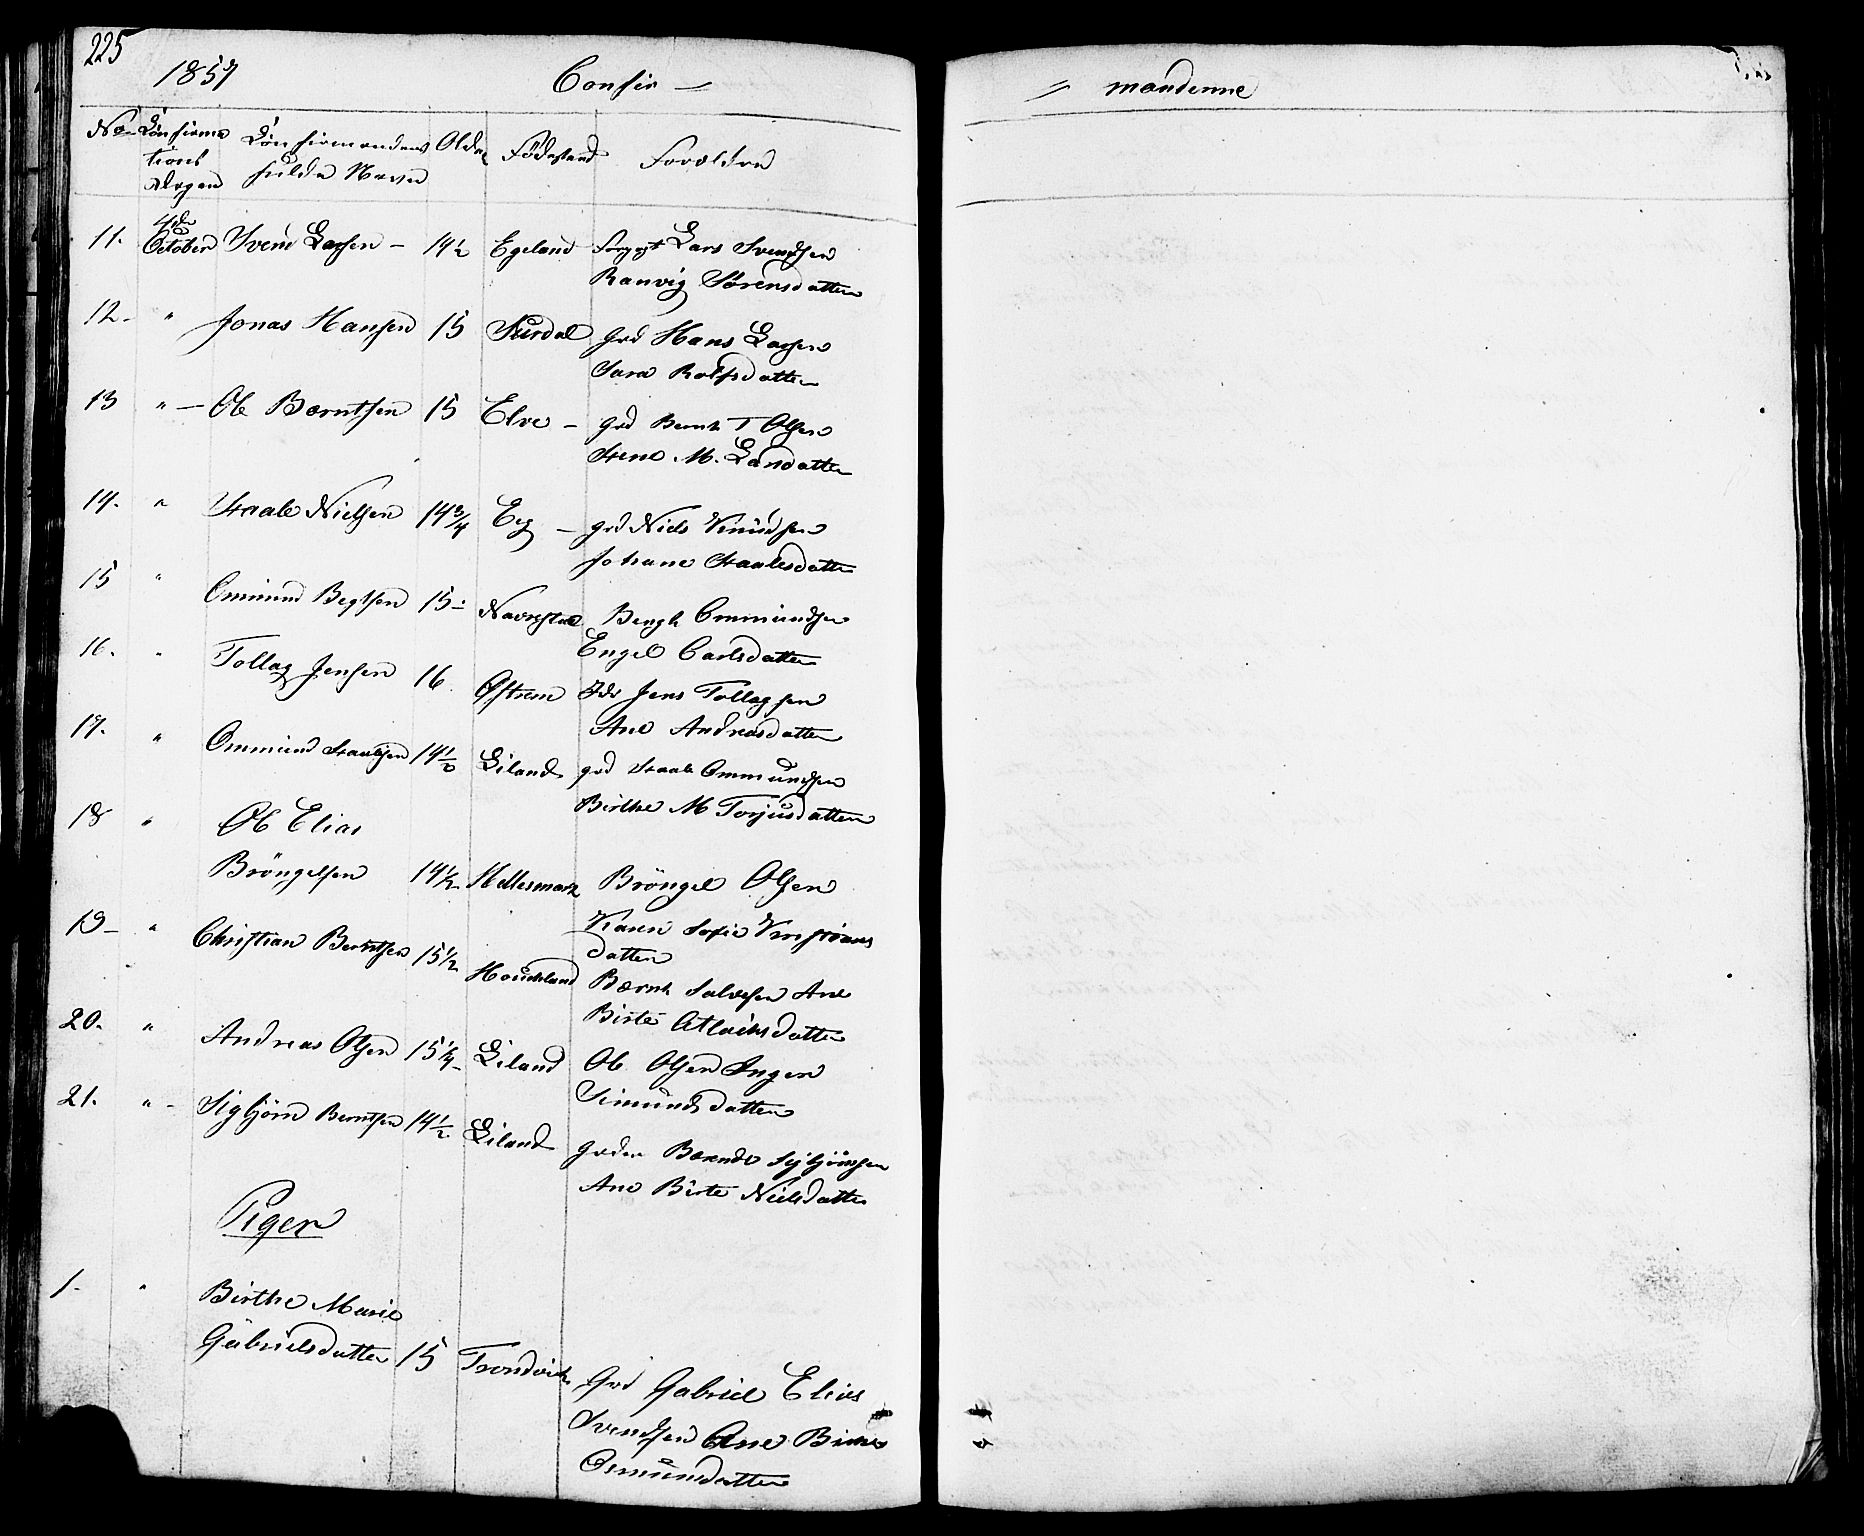 225
1857 Confir – – mandenne
No Confirma Confirmandens Alder Fødested Forældre
tions fulde Navn
Dagen
4de
11. October Svend Larsen – 14½ Egeland Lars Svendsen
Ranvig Sørensdatter
12. " Jonas Hansen 15 Suirdal grd Hans Larsen
Sara Rolfsdatter
13 " – Ole Bærntsen 15 Elve – grd Bernt T Olsen
M. Larsdatter
14. " Staale Nielsen 14¾ Eeg – grd Niels Knudsen
Johane Staalesdatter
15 " Ommund Begtsen 15 – Navrestad Bengt Ommundsen
Engel Carlsdatter
16. " Tollag Jensen 16 Østrem Jens Tollagsen
Ane Andreasdatter
17. " Ommund Staalesen 14½ Liland grd Staale Ommundsen
Birthe M Torjusdatter
18 " Ole Elias
Bröngelsen 14½ Hellesmark Bröngel Olsen
Karen Sofie
datter
19 – " Christian Berntsen 15½ Houchland Bærnt Salvesen Ane
Birte Atlaksdatter
20. " Andreas Olsen 15¼ Liland Ole Olsen Inger
Simundsdatter
21. " – Sigbjörn Berntsen 14½ Liland Bærndt Sigbjörnsen
Ane Birte Nielsdatter
Piger
1. " Birthe Marie
Gabrielsdatter 15 Trondvik Grd Gabriel Elias
Svendsen Ane Birthe
Osmundsdatter